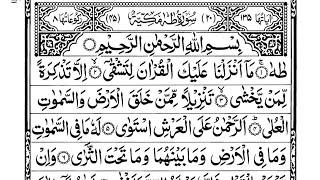 اٰيَاتُهَا ١٣٥ (٢٠) سُوْرَةُ طٰهٰ مَكِّيَّةٌ (٤٥) رُكُوْعَاتُهَا ٨
بِسْمِ اللّٰهِ الرَّحْمٰنِ الرَّحِيْمِ
طٰهٰ ۝١ مَآ اَنْزَلْنَا عَلَيْكَ الْقُرْاٰنَ لِتَشْقٰٓى ۝٢ اِلَّا تَذْكِرَةً
لِّمَنْ يَّخْشٰى ۝٣ تَنْزِيْلًا مِّمَّنْ خَلَقَ الْاَرْضَ وَالسَّمٰوٰتِ
الْعُلٰى ۝٤ اَلرَّحْمٰنُ عَلَى الْعَرْشِ اسْتَوٰى ۝٥ لَهٗ مَا فِى السَّمٰوٰتِ
وَمَا فِى الْاَرْضِ وَمَا بَيْنَهُمَا وَمَا تَحْتَ الثَّرٰى ۝٦ وَاِنْ